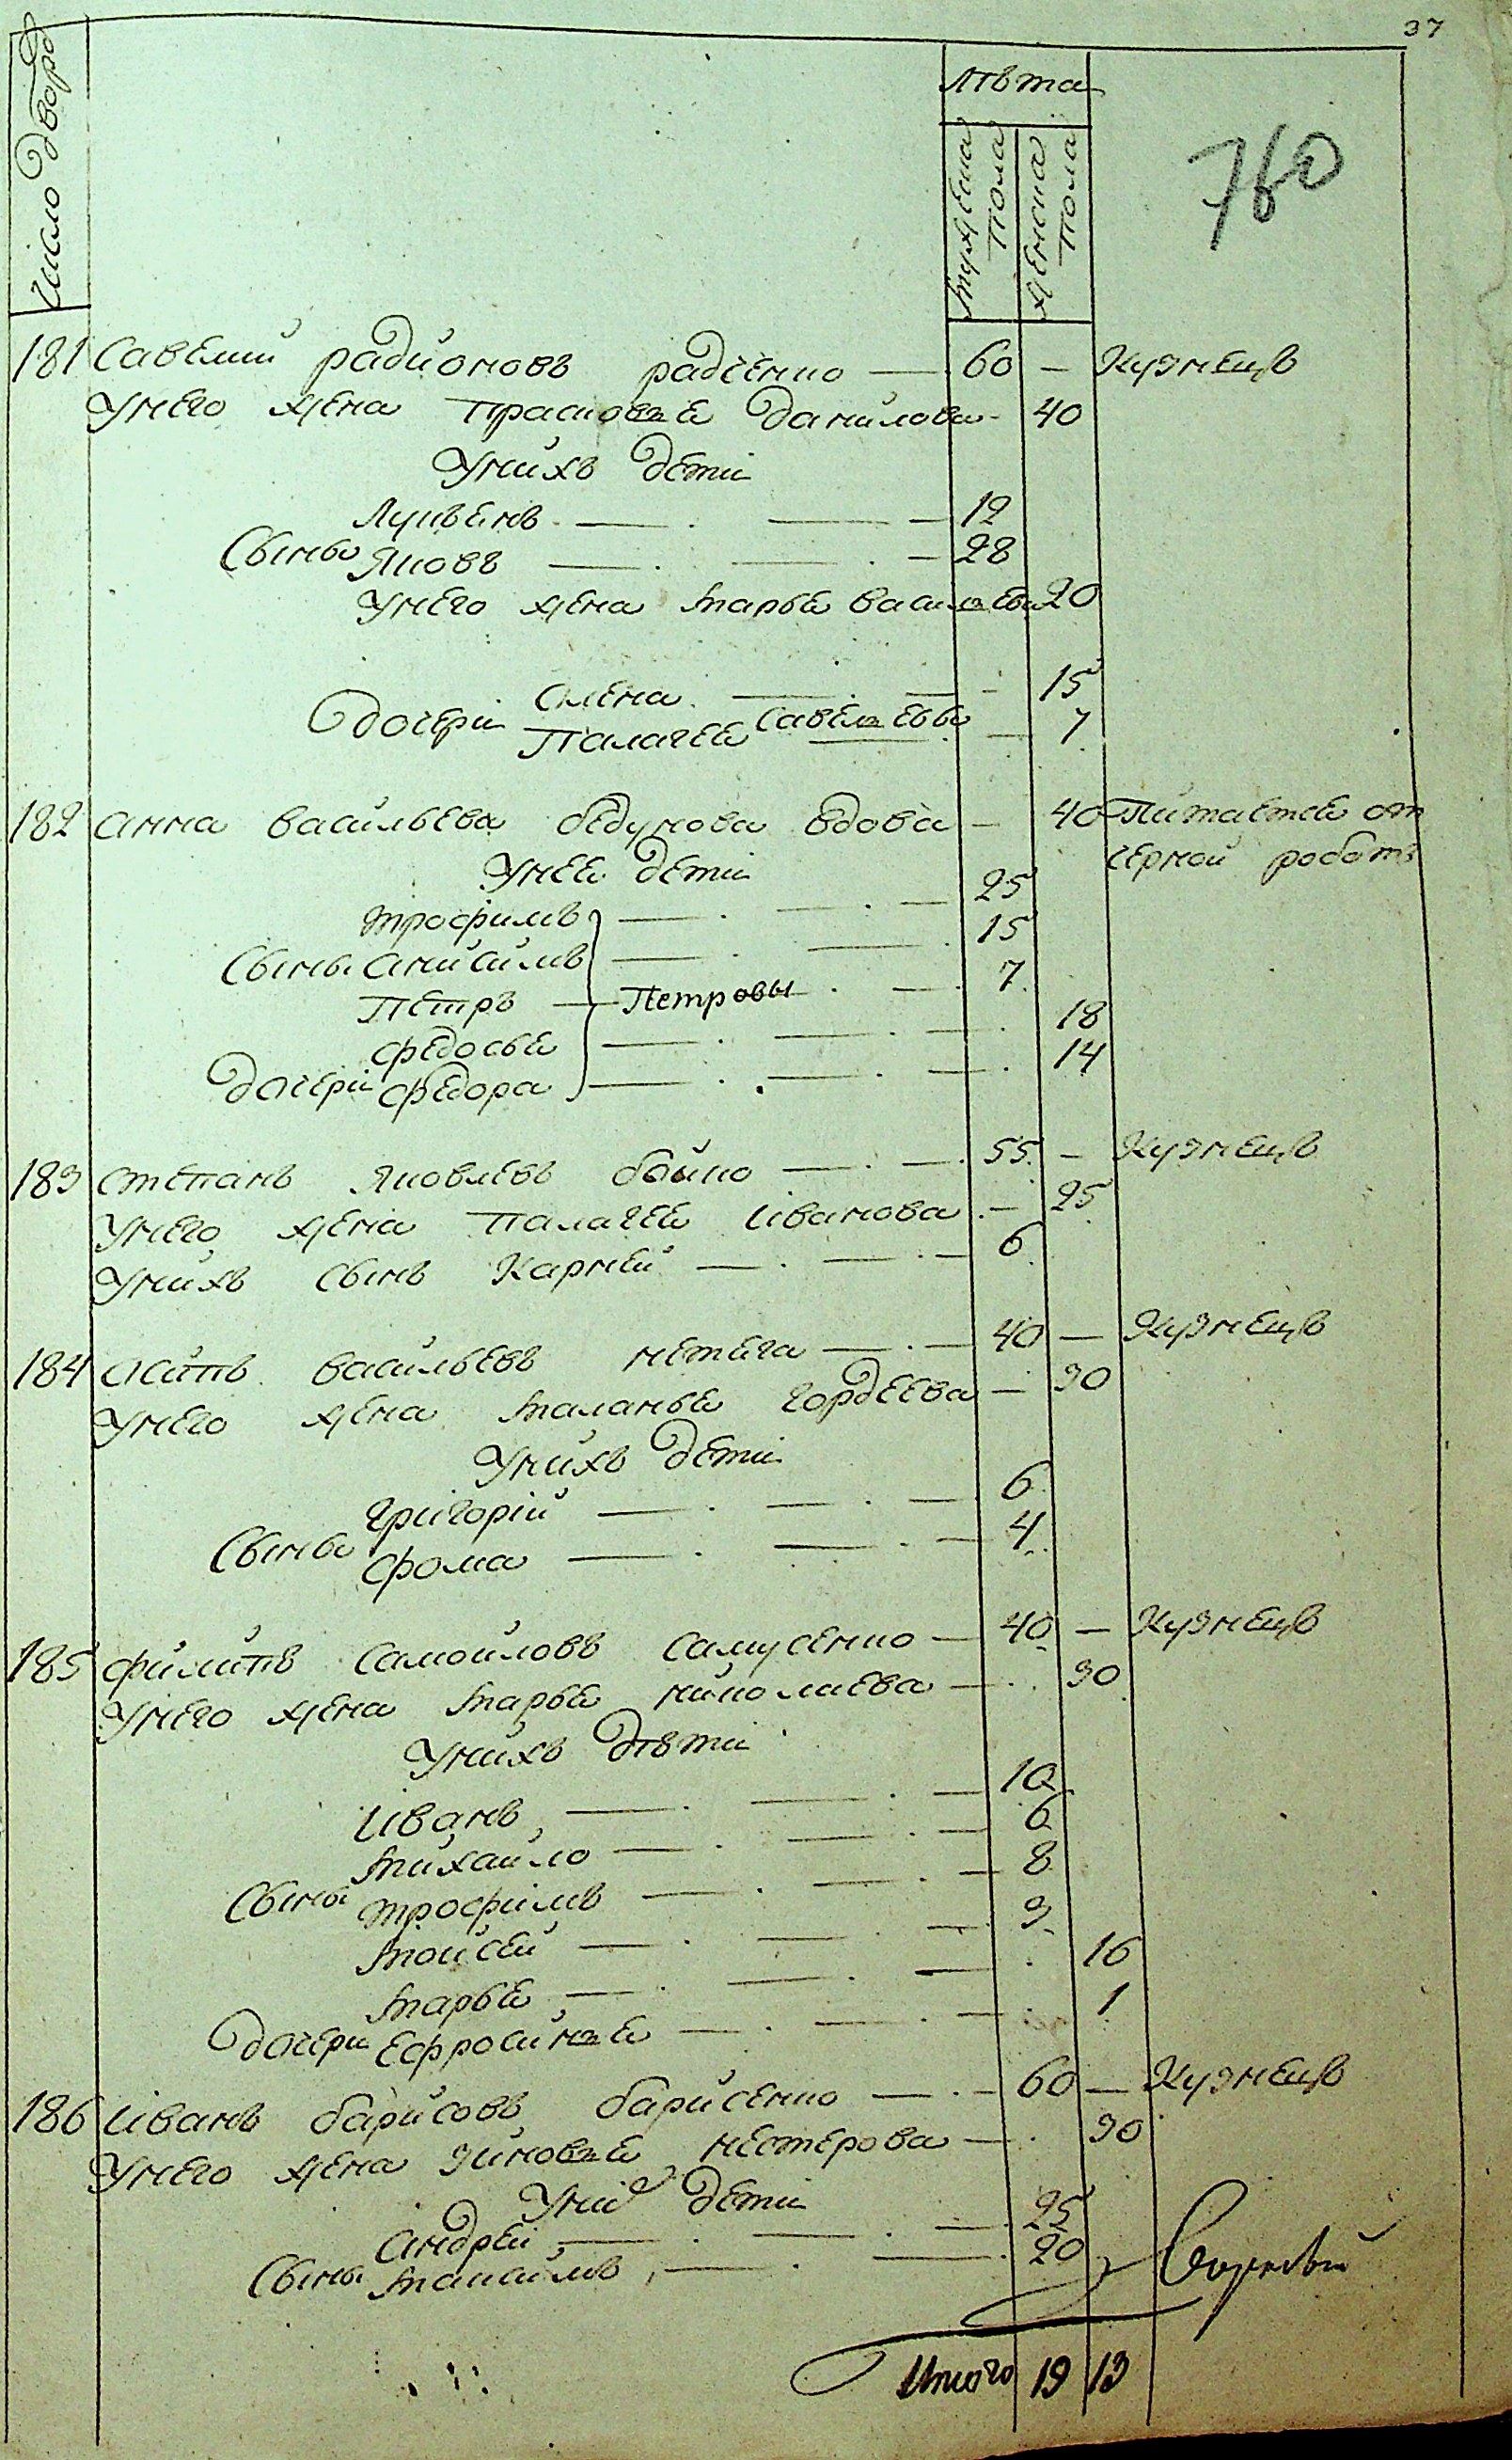 37
Число Дворо
лѣта
мужеска пола
женска пола
181 Савелий радионовъ радченко — 60 — Кузнецъ
Унего жена Прасковья данилова - 40
Унихъ дети
Лукьянъ — 12
Сыны Яковъ — 28
Унего жена Марья васильева 20
Олена — 15
Дочери Савельевы
Палагея — 7
182 Анна васильева бедунова вдова — 40 Питается от
черной работы
Унея дети
Трофимъ — 25
Сыны Анисимъ — 15
Петръ — Петровы — 7
Федосья — 18
Дочери Федора — 14
183 Степанъ Яковлевъ бойко — 55 — Кузнецъ
Унего жена Палагея Иванова — 25
Унихъ сынъ Карней — 6
184 Осипъ васильевъ нетяга — 40 — Кузнецъ
Унего жена Маланья гордеева — 30
Унихъ дети
григорий — 6
Сыны Фома — 4
185 Филипъ Самойловъ Самусенко — 40 — Кузнецъ
Унего жена Марья николаева — 30
Унихъ дѣти
Иванъ — 10
Михайло — 6
Сыны Трофимъ — 8
Мойсей — 3
Марья — 16
Дочери Ефросинья — 1
186 Иванъ барисовъ барисенко — 60 — Кузнецъ
Унего жена Зиновья нестерова — 30
Уних дети
Андрей — 25
Сыны — 20
Итого 19 13